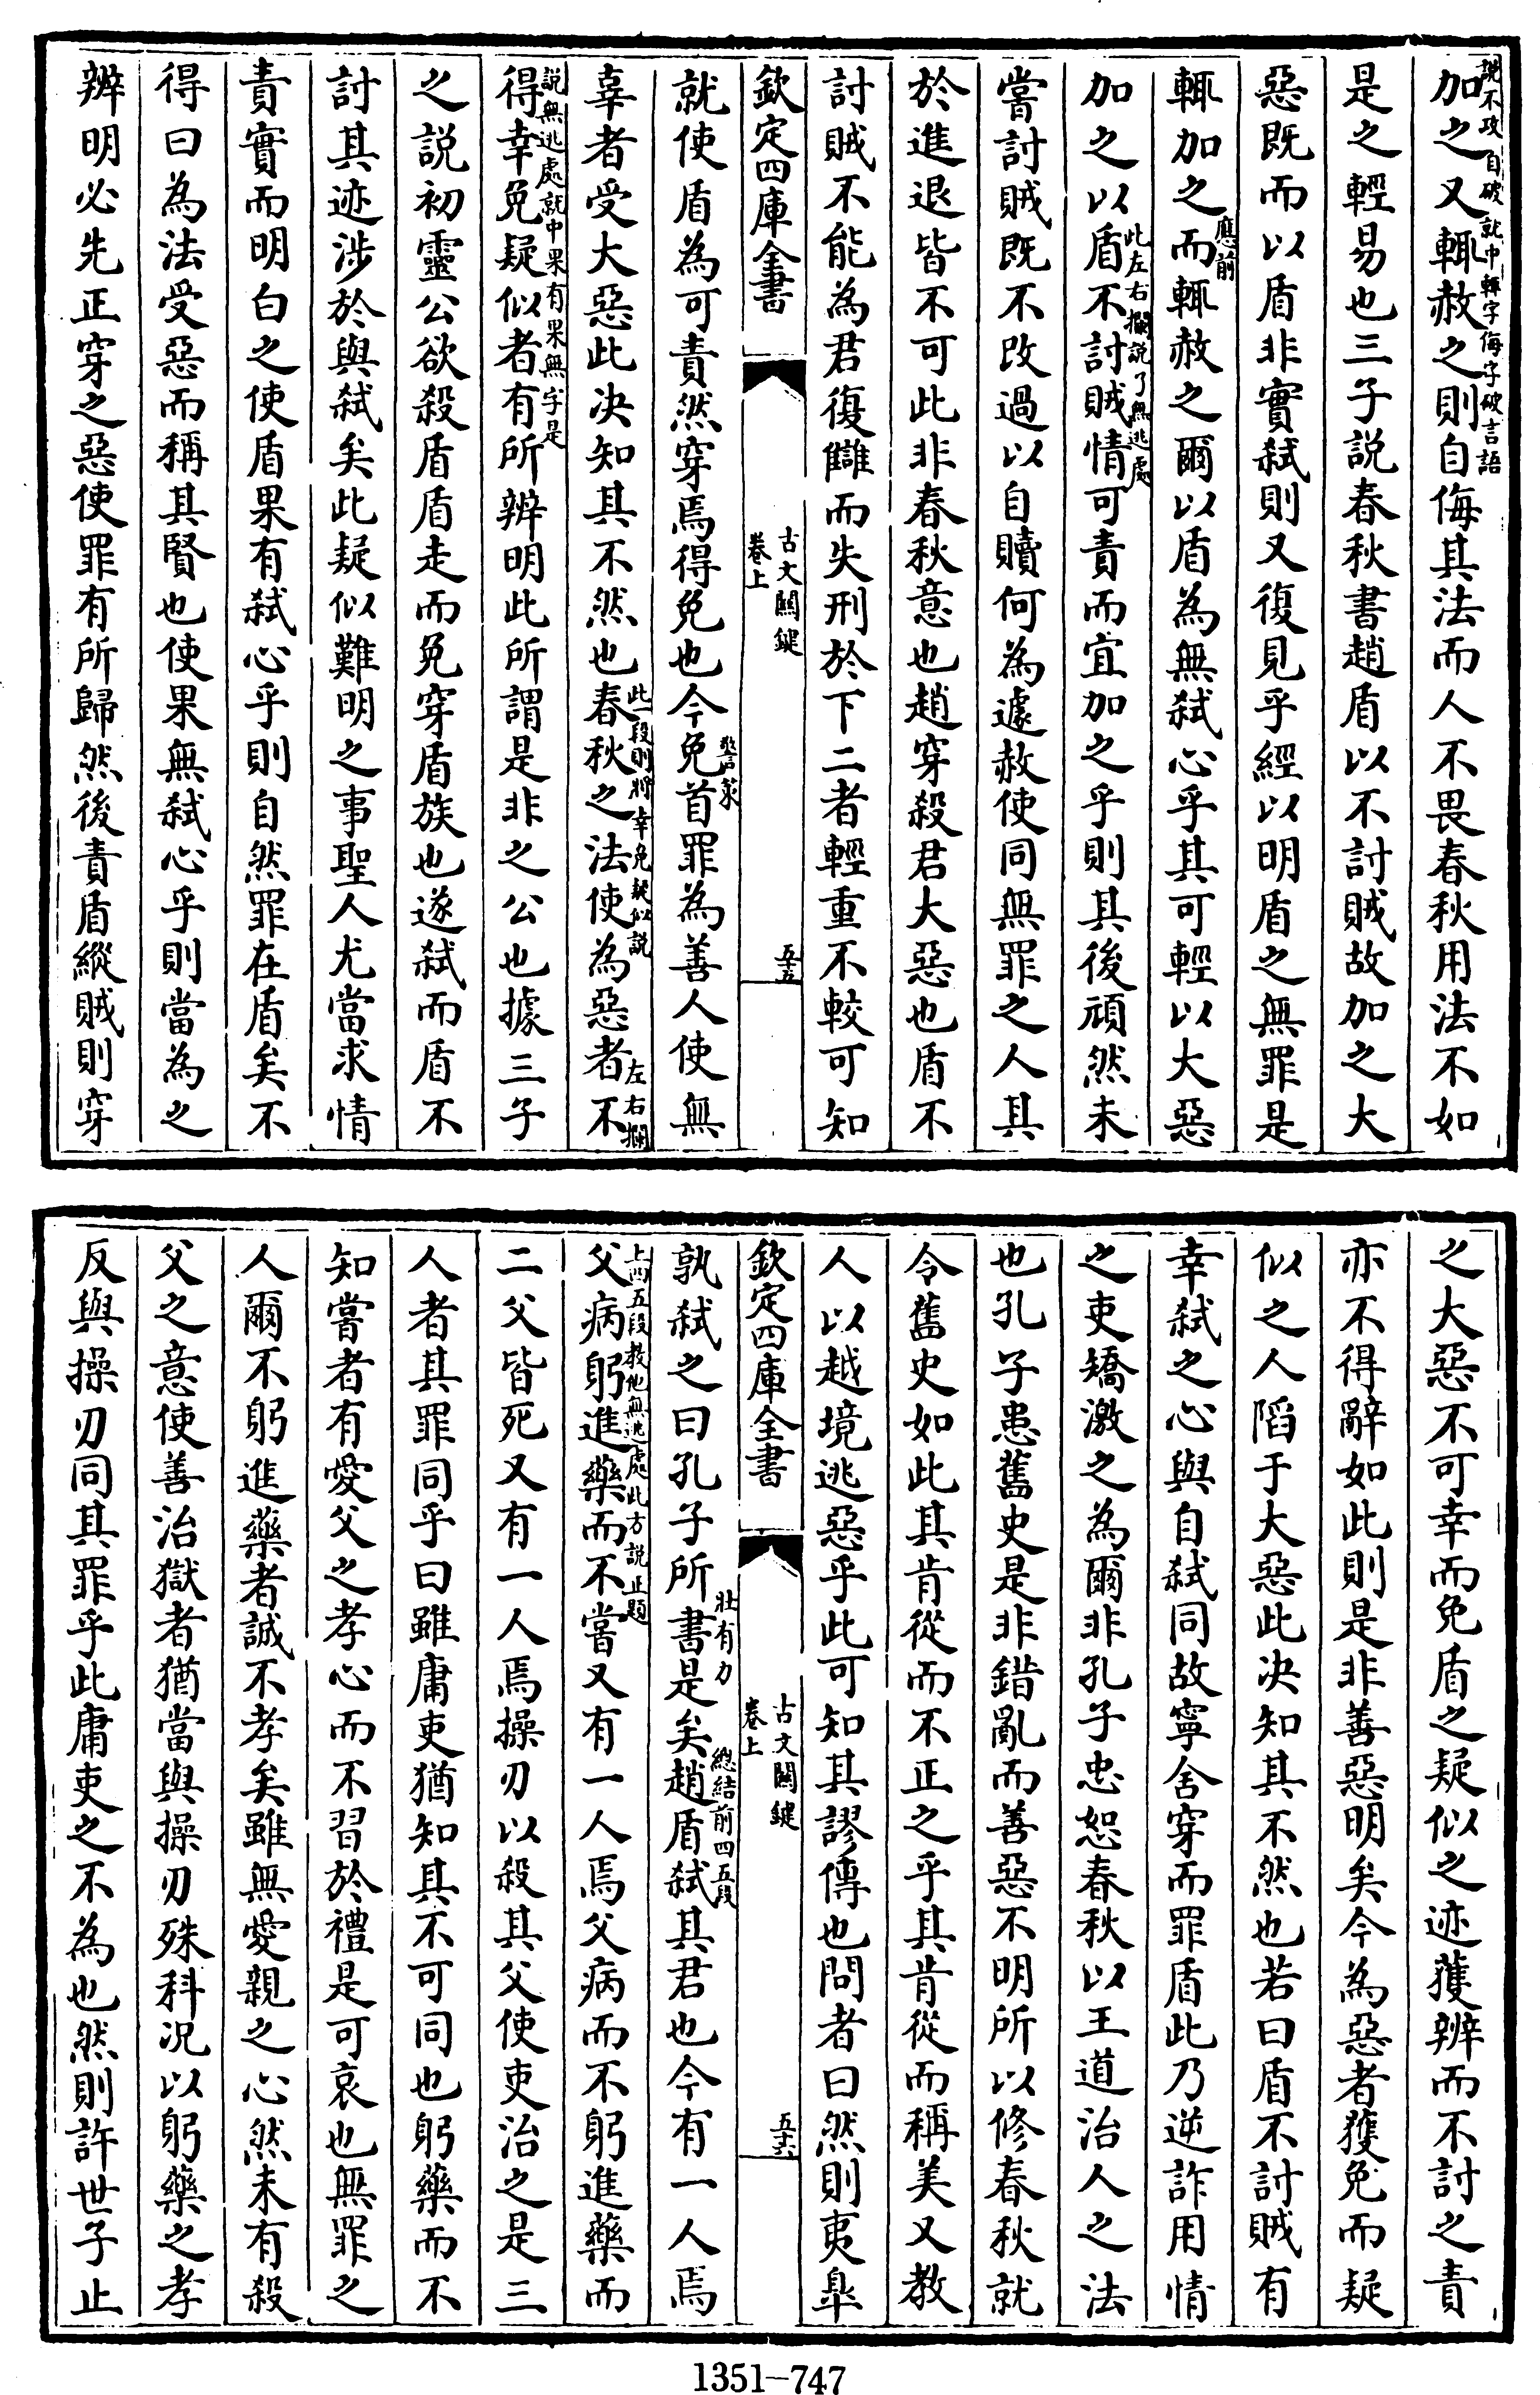 說不攻自破就中輕字侮字破言語
加之又輒赦之則自侮其法而人不畏春秋用法不如
是之輕易也三子説春秋書趙盾以不討賊故加之大
惡既而以盾非實弑則又復見乎經以明盾之無罪是
應前
輒加之而輒赦之爾以盾為無弑心乎其可輕以大惡
此左右攔說了無逃處
加之以盾不討賊情可責而宜加之乎則其後頑然未
嘗討賊既不改過以自贖何為遽赦使同無罪之人其
於進退皆不可此非春秋意也趙穿殺君大惡也盾不
討賊不能為君復讎而失刑於下二者輕重不較可知
欽定四庫全書
古文關鍵
卷上
五十五
就使盾為可責然穿焉得免也今免首罪為善人使無
警策
辜者受大惡此决知其不然也春秋之法使為惡者不
此一段則將幸免疑似說
左右攔
說無逃處就中果有果無字是
得幸免疑似者有所辨明此所謂是非之公也據三子
之説初靈公欲殺盾盾走而免穿盾族也遂弑而盾不
討其迹涉於與弑矣此疑似難明之事聖人尤當求情
責實而明白之使盾果有弑心乎則自然罪在盾矣不
得曰為法受惡而稱其賢也使果無弑心乎則當為之
辨明必先正穿之惡使罪有所歸然後責盾縱賊則穿
之大惡不可幸而免盾之疑似之迹獲辨而不討之責
亦不得辭如此則是非善惡明矣今為惡者獲免而疑
似之人陷于大惡此决知其不然也若曰盾不討賊有
幸弑之心與自弑同故寧舍穿而罪盾此乃逆詐用情
之吏矯激之為爾非孔子忠恕春秋以王道治人之法
也孔子患舊史是非錯亂而善惡不明所以修春秋就
令舊史如此其肯從而不正之乎其肯從而稱美又教
人以越境逃惡乎此可知其謬傳也問者曰然則夷臯
欽定四庫全書
古文關鍵
卷上
五十六
孰弑之曰孔子所書是矣趙盾弑其君也今有一人焉
壯有力
總結前四五段
上四五段教他無逃處此方說正題
父病躬進藥而不嘗又有一人焉父病而不躬進藥而
二父皆死又有一人焉操刃以殺其父使吏治之是三
人者其罪同乎曰雖庸吏猶知其不可同也躬藥而不
知嘗者有愛父之孝心而不習於禮是可哀也無罪之
人爾不躬進藥者誠不孝矣雖無愛親之心然未有殺
父之意使善治獄者猶當與操刃殊科况以躬藥之孝
反與操刃同其罪乎此庸吏之不為也然則許世子止
1351-747